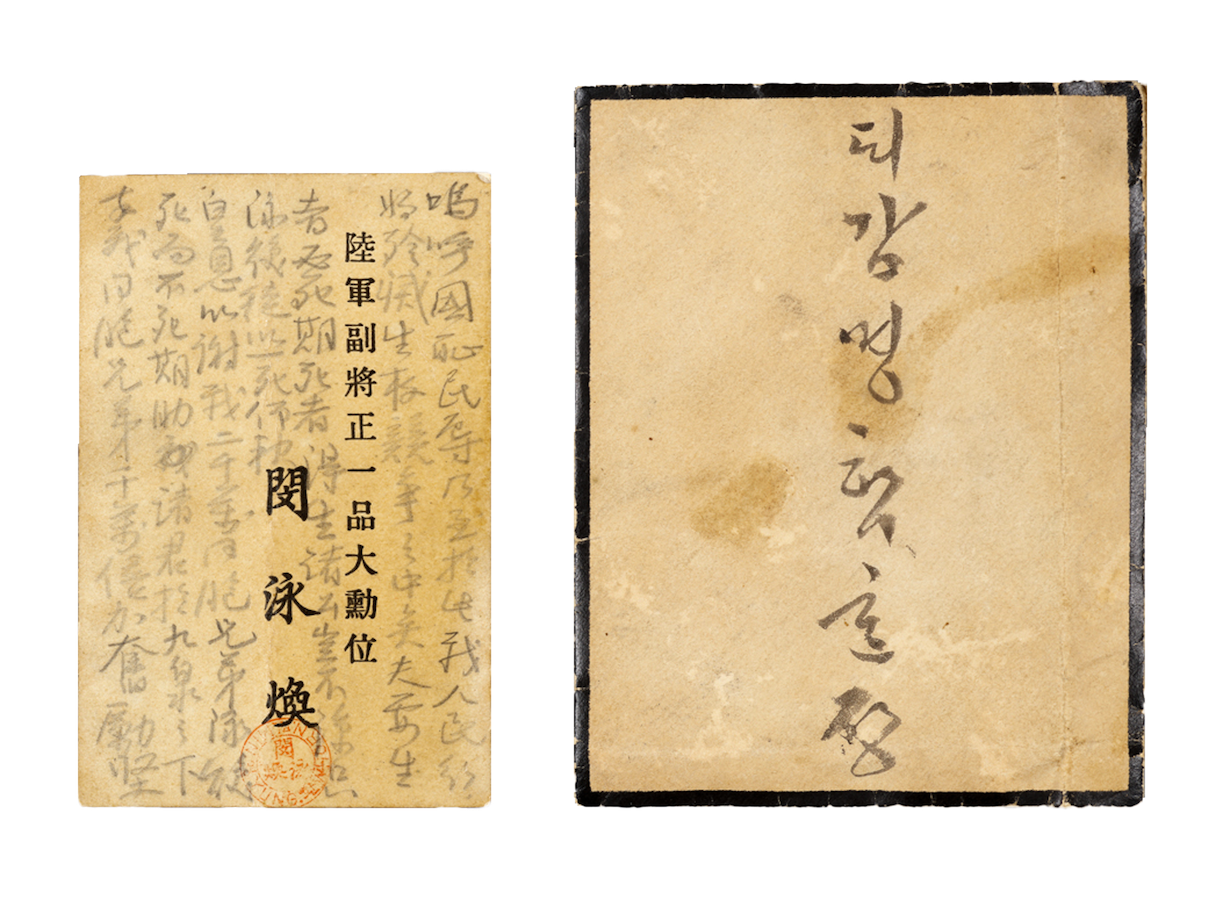 嗚呼國恥民辱乃至於此我人民行
將殄滅生存競爭之中矣夫要生
陸軍副將正一品大勳位
者必死期死者得生諸公豈不諒只
泳煥徒以一死仰報
閔泳煥
皇恩以謝我二千萬同胞兄弟泳煥
死而不死期助我諸君於九泉之下
幸我同胞兄弟千萬倍加奮勵堅
閔泳煥
감명함